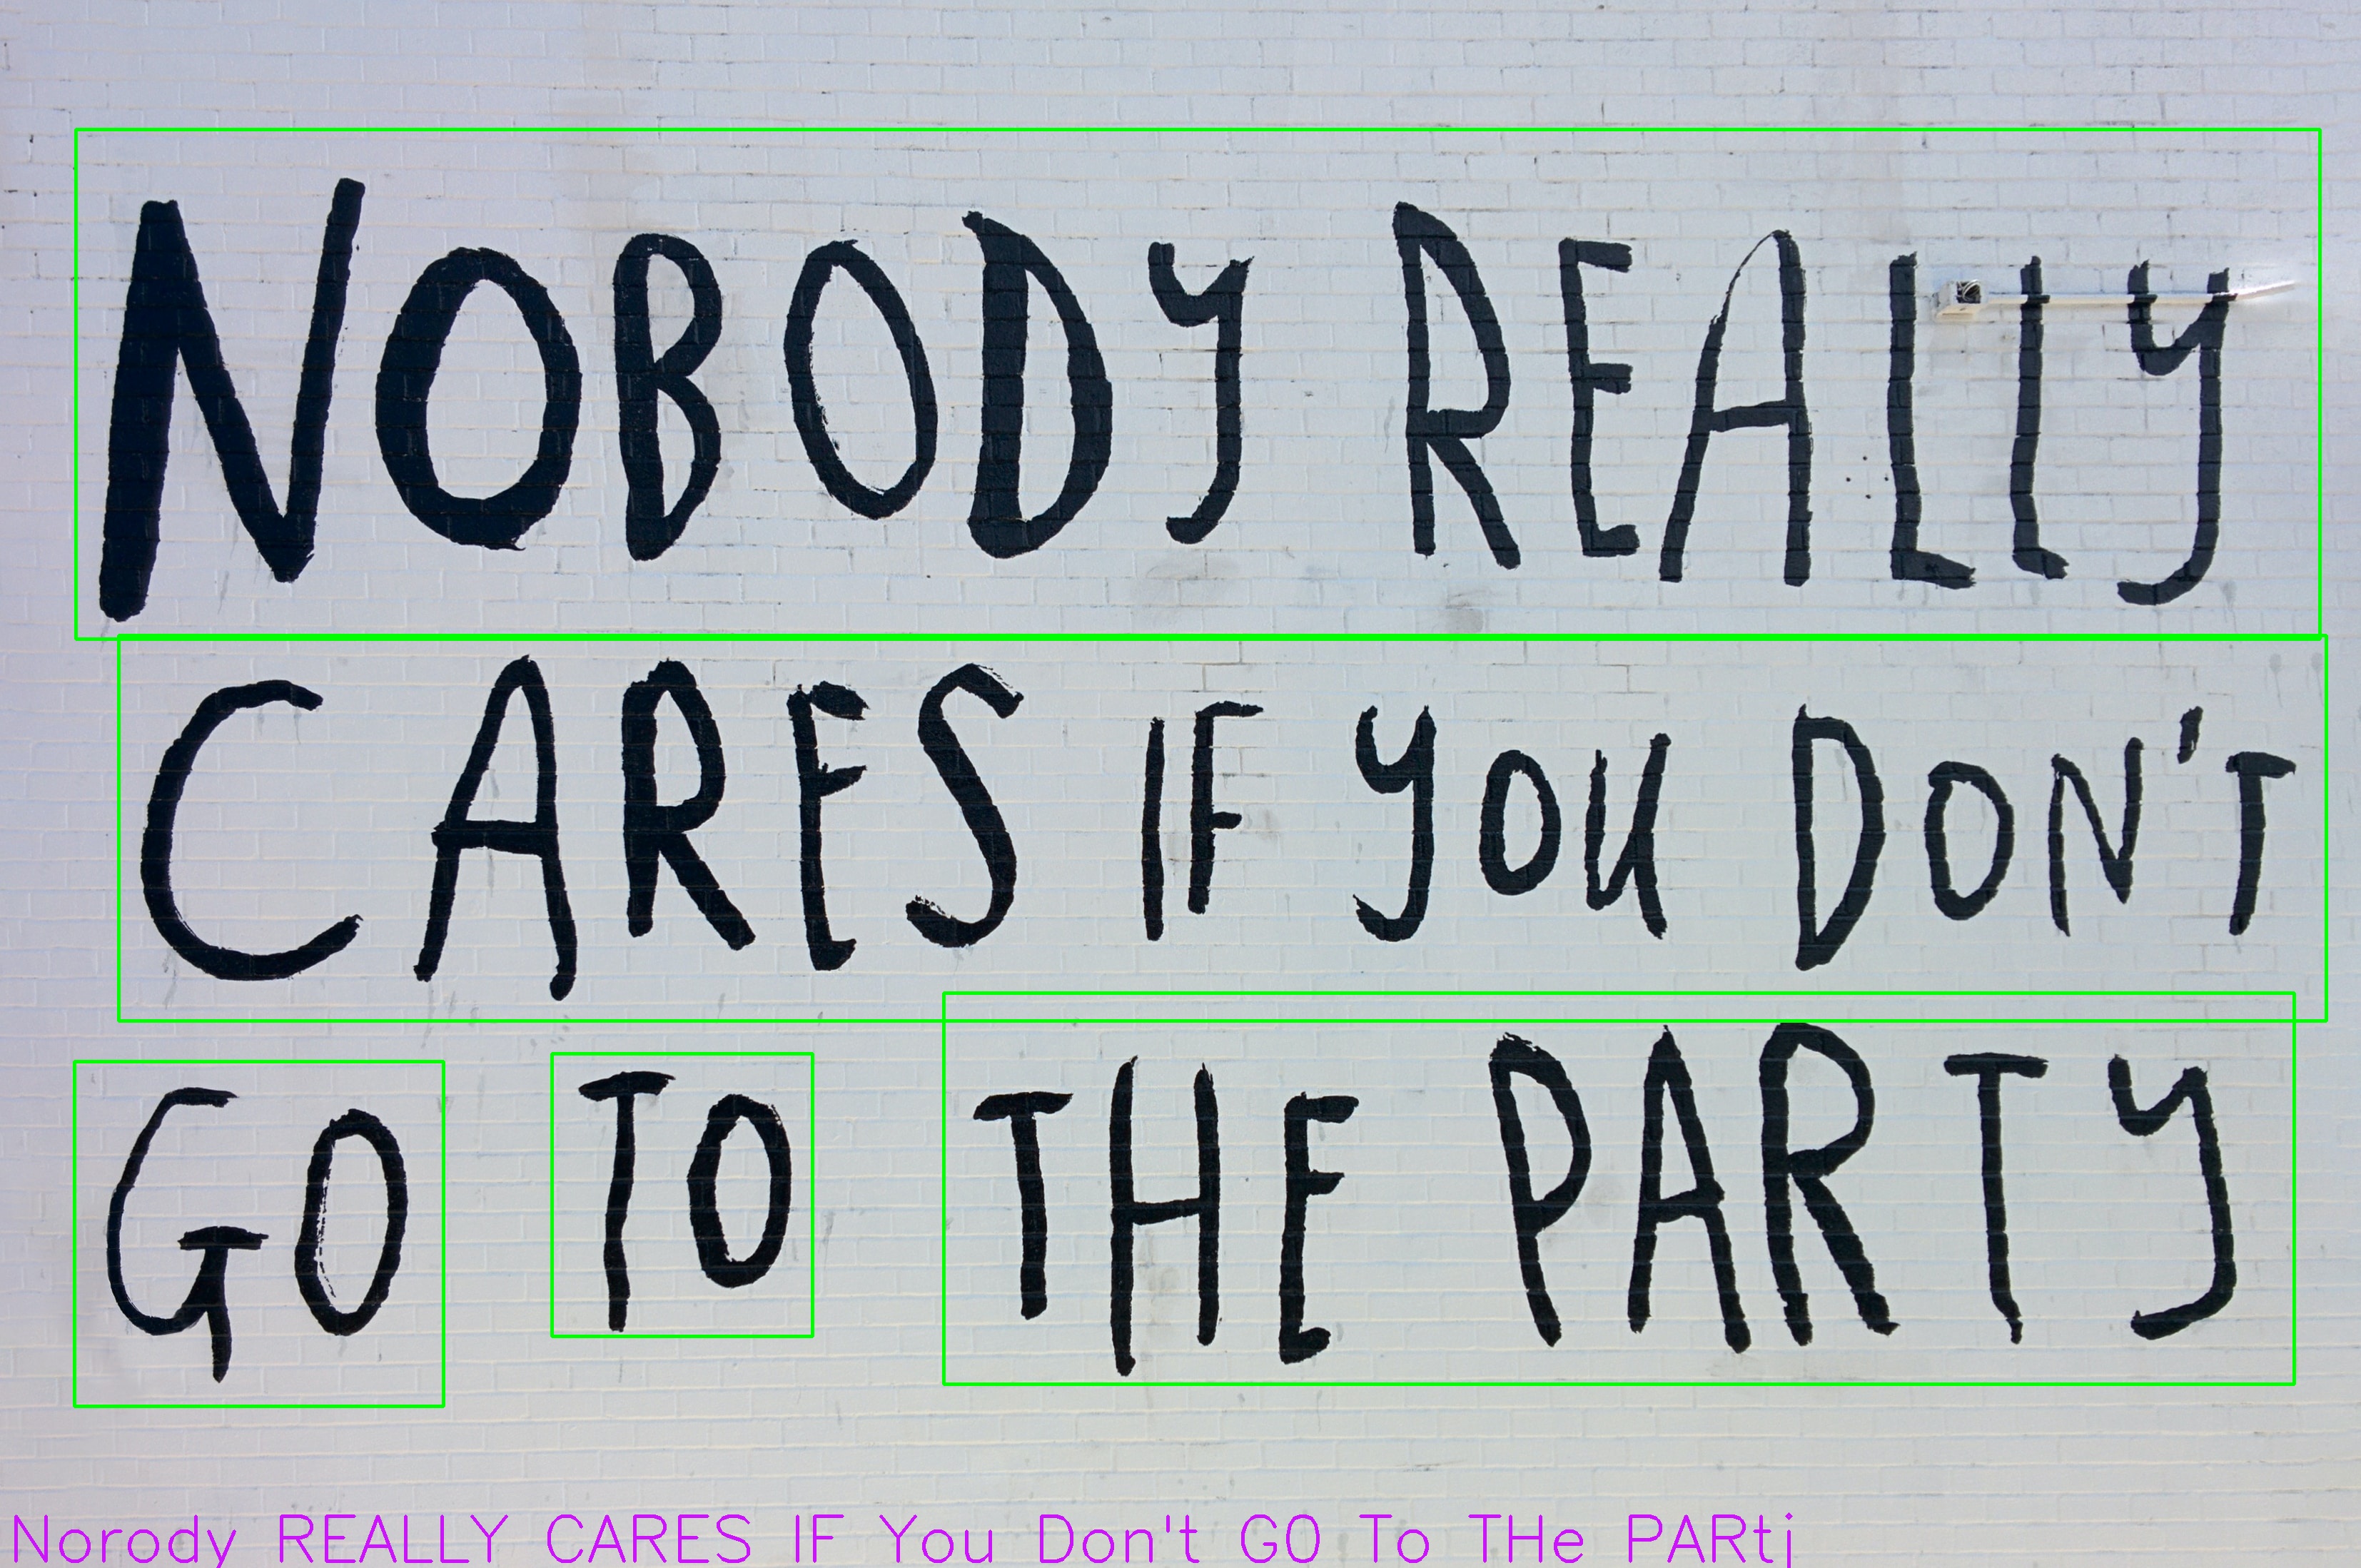 NOBODY REALLY
CARES IF YOU DON'T
GO TO THE PARTY
Norody REALLY CARES IF You Don't GO To THe PARtj